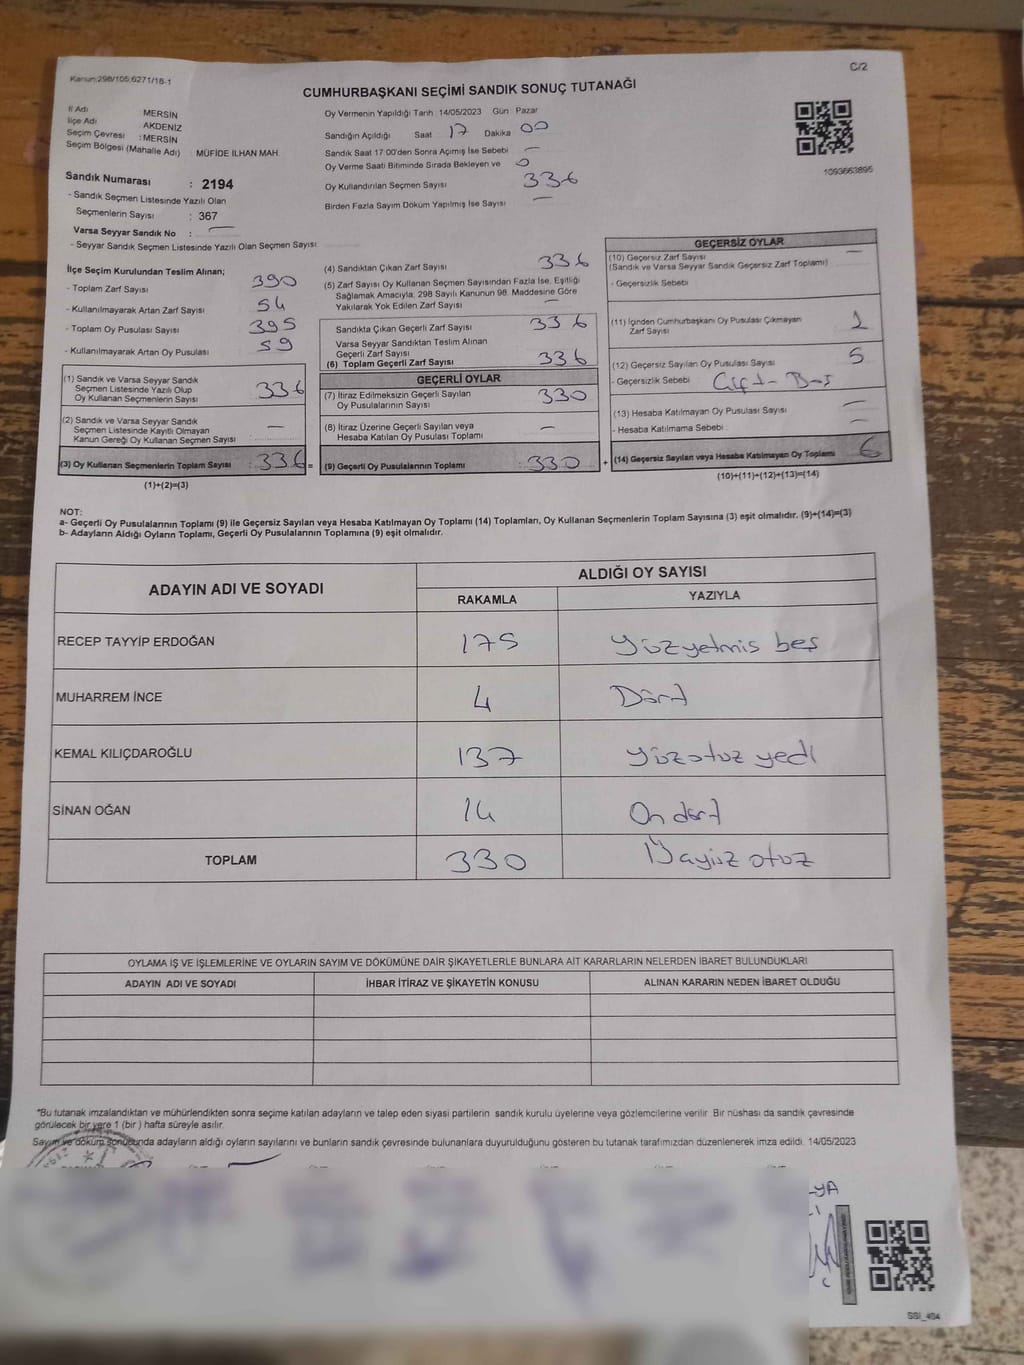 Kanun:298/105;6271/16-1
C/2
CUMHURBAŞKANI SEÇİMİ SANDIK SONUÇ TUTANAĞI
İl Adı MERSİN
İlçe Adı AKDENİZ
Seçim Çevresi : MERSİN
Seçim Bölgesi (Mahalle Adı) : MÜFİDE İLHAN MAH.
Sandık Numarası : 2194
- Sandık Seçmen Listesinde Yazılı Olan
Seçmenlerin Sayısı : 367
Varsa Seyyar Sandık No : —
- Seyyar Sandık Seçmen Listesinde Yazılı Olan Seçmen Sayısı:
Oy Vermenin Yapıldığı Tarih 14/05/2023 Gün : Pazar
Sandığın Açıldığı Saat 17 Dakika 00
Sandık Saat 17:00'den Sonra Açılmış İse Sebebi —
Oy Verme Saati Bitiminde Sırada Bekleyen ve 0
Oy Kullandırılan Seçmen Sayısı 336
Birden Fazla Sayım Döküm Yapılmış İse Sayısı —
1093663895
İlçe Seçim Kurulundan Teslim Alınan;
- Toplam Zarf Sayısı 390
- Kullanılmayarak Artan Zarf Sayısı 54
- Toplam Oy Pusulası Sayısı 395
- Kullanılmayarak Artan Oy Pusulası 59
(1) Sandık ve Varsa Seyyar Sandık
Seçmen Listesinde Yazılı Olup
Oy Kullanan Seçmenlerin Sayısı 336
(2) Sandık ve Varsa Seyyar Sandık
Seçmen Listesinde Kayıtlı Olmayan
Kanun Gereği Oy Kullanan Seçmen Sayısı —
(3) Oy Kullanan Seçmenlerin Toplam Sayısı : 336 =
(1)+(2)=(3)
(4) Sandıktan Çıkan Zarf Sayısı 336
(5) Zarf Sayısı Oy Kullanan Seçmen Sayısından Fazla İse, Eşitliği
Sağlamak Amacıyla; 298 Sayılı Kanunun 98. Maddesine Göre
Yakılarak Yok Edilen Zarf Sayısı —
Sandıkta Çıkan Geçerli Zarf Sayısı 336
Varsa Seyyar Sandıktan Teslim Alınan
Geçerli Zarf Sayısı
(6) Toplam Geçerli Zarf Sayısı 336
GEÇERLİ OYLAR
(7) İtiraz Edilmeksizin Geçerli Sayılan
Oy Pusulalarının Sayısı 330
(8) İtiraz Üzerine Geçerli Sayılan veya
Hesaba Katılan Oy Pusulası Toplamı —
(9) Geçerli Oy Pusulalarının Toplamı 330 +
GEÇERSİZ OYLAR
(10) Geçersiz Zarf Sayısı —
(Sandık ve Varsa Seyyar Sandık Geçersiz Zarf Toplamı)
- Geçersizlik Sebebi
(11) İçinden Cumhurbaşkanı Oy Pusulası Çıkmayan
Zarf Sayısı 1
(12) Geçersiz Sayılan Oy Pusulası Sayısı 5
- Geçersizlik Sebebi
(13) Hesaba Katılmayan Oy Pusulası Sayısı —
- Hesaba Katılmama Sebebi : —
(14) Geçersiz Sayılan veya Hesaba Katılmayan Oy Toplamı 6
(10)+(11)+(12)+(13)=(14)
NOT:
a- Geçerli Oy Pusulalarının Toplamı (9) ile Geçersiz Sayılan veya Hesaba Katılmayan Oy Toplamı (14) Toplamları, Oy Kullanan Seçmenlerin Toplam Sayısına (3) eşit olmalıdır. (9)+(14)=(3)
b- Adayların Aldığı Oyların Toplamı, Geçerli Oy Pusulalarının Toplamına (9) eşit olmalıdır.
ADAYIN ADI VE SOYADI ALDIĞI OY SAYISI
RAKAMLA YAZIYLA
RECEP TAYYİP ERDOĞAN 175 Yüzyetmis beş
MUHARREM İNCE 4 Dört
KEMAL KILIÇDAROĞLU 137 Yüzotuz yedi
SİNAN OĞAN 14 On dört
TOPLAM 330 otuz
OYLAMA İŞ VE İŞLEMLERİNE VE OYLARIN SAYIM VE DÖKÜMÜNE DAİR ŞİKAYETLERLE BUNLARA AİT KARARLARIN NELERDEN İBARET BULUNDUKLARI
ADAYIN ADI VE SOYADI İHBAR İTİRAZ VE ŞİKAYETİN KONUSU ALINAN KARARIN NEDEN İBARET OLDUĞU
*Bu tutanak imzalandıktan ve mühürlendikten sonra seçime katılan adayların ve talep eden siyasi partilerin sandık kurulu üyelerine veya gözlemcilerine verilir. Bir nüshası da sandık çevresinde
görülecek bir yere 1 (bir) hafta süreyle asılır.
Sayım ve döküm sonucunda adayların aldığı oyların sayılarını ve bunların sandık çevresinde bulunanlara duyurulduğunu gösteren bu tutanak tarafımızdan düzenlenerek imza edildi. 14/05/2023